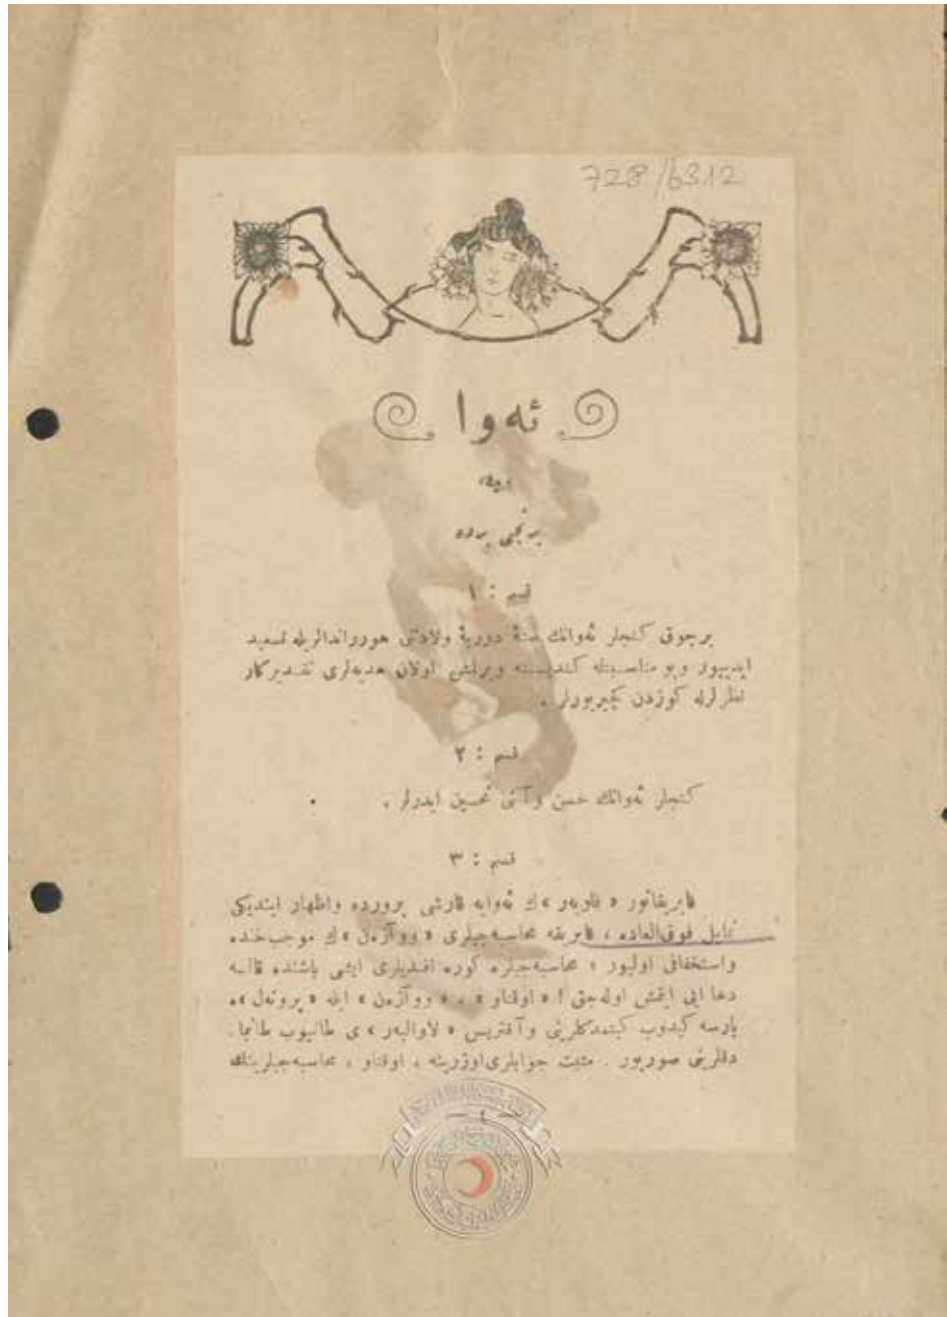 728/6312
ئه وا
برنجی پرده
قسم : ۱
برچوق کنجلر ئه‌وانك سنهٔ دوریهٔ ولادتنی هوررانداالریله تسعید
ایدییور و بو مناسبتله کندیسنه ویرلمش اولان هدیه‌لری تقدیرکار
نظرلرله کوزدن کچیریورلر .
قسم : ۲
کنجلر ئه‌وانك حسن و آنی تحسین ایدرلر .
قسم : ۳
فابریقاتور « فلوبهر » ك ئه‌وایه قارشی پرورده واظهار ایتدیکی
تمایل فوق‌العاده ، فابریقه محاسبه‌جیلری « ووآزه‌ن » ك موجب خنده
واستخفافی اولیور ؛ محاسبه‌جیلره کوره افندیلری ایشی باشنده قالسه
دها ایی ایتمش اوله‌جق ! « اوقتاو » ، « ووآزه‌ن » ایله « پروته‌ل » ه
پارسه کیدوب کیتمدکلرینی وآقتریس « لاوالیه‌ر » ی طانیوب طانیما-
دقلرینی صوریور . مثبت جوابلری اوزرینه ، اوقتاو ، محاسبه‌جیلرینك
— ٤ —